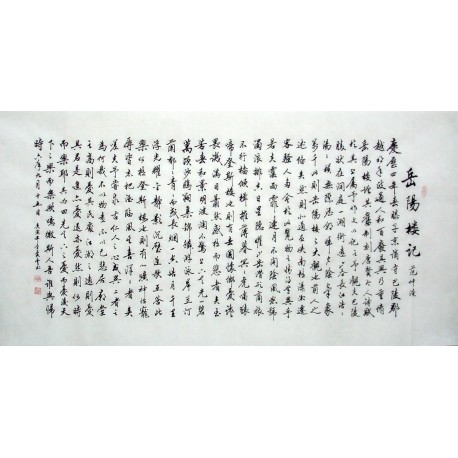 岳陽樓記 范仲淹
慶曆四年春滕子京謫守巴陵郡
越明年政通人和百廢具興乃重脩
岳陽樓增其舊制刻唐賢今人詩賦
於其上屬予作文以記之予觀夫巴陵
勝狀在洞庭一湖銜遠山吞長江浩浩
湯湯橫無際涯朝暉夕陰氣象
萬千此則岳陽樓之大觀也前人之
述備矣然則北通巫峽南極瀟湘遷
客騷人多會於此覽物之情得無異乎
若夫霪雨霏霏連月不開陰風怒號
濁浪排空日星隱曜山岳潛形商旅
不行檣傾楫摧薄暮冥冥虎嘯猿
啼登斯樓也則有去國懷鄉憂讒
畏譏滿目蕭然感極而悲者矣至
若春和景明波瀾不驚上下天光一碧
萬頃沙鷗翔集錦鱗游泳岸芷汀
蘭郁郁青青而或長煙一空皓月千里
浮光耀金靜影沉璧漁歌互答此
樂何極登斯樓也則有心曠神怡寵
辱皆忘把酒臨風其喜洋洋者矣
嗟夫予嘗求古仁人之心或異二者之
為何哉不以物喜不以己悲居廟堂
之高則憂其民處江湖之遠則憂
其君是進亦憂退亦憂然則何時
而樂耶其必曰先天下之憂而憂後天
下之樂而樂歟噫微斯人吾誰與歸
時六年九月十五日